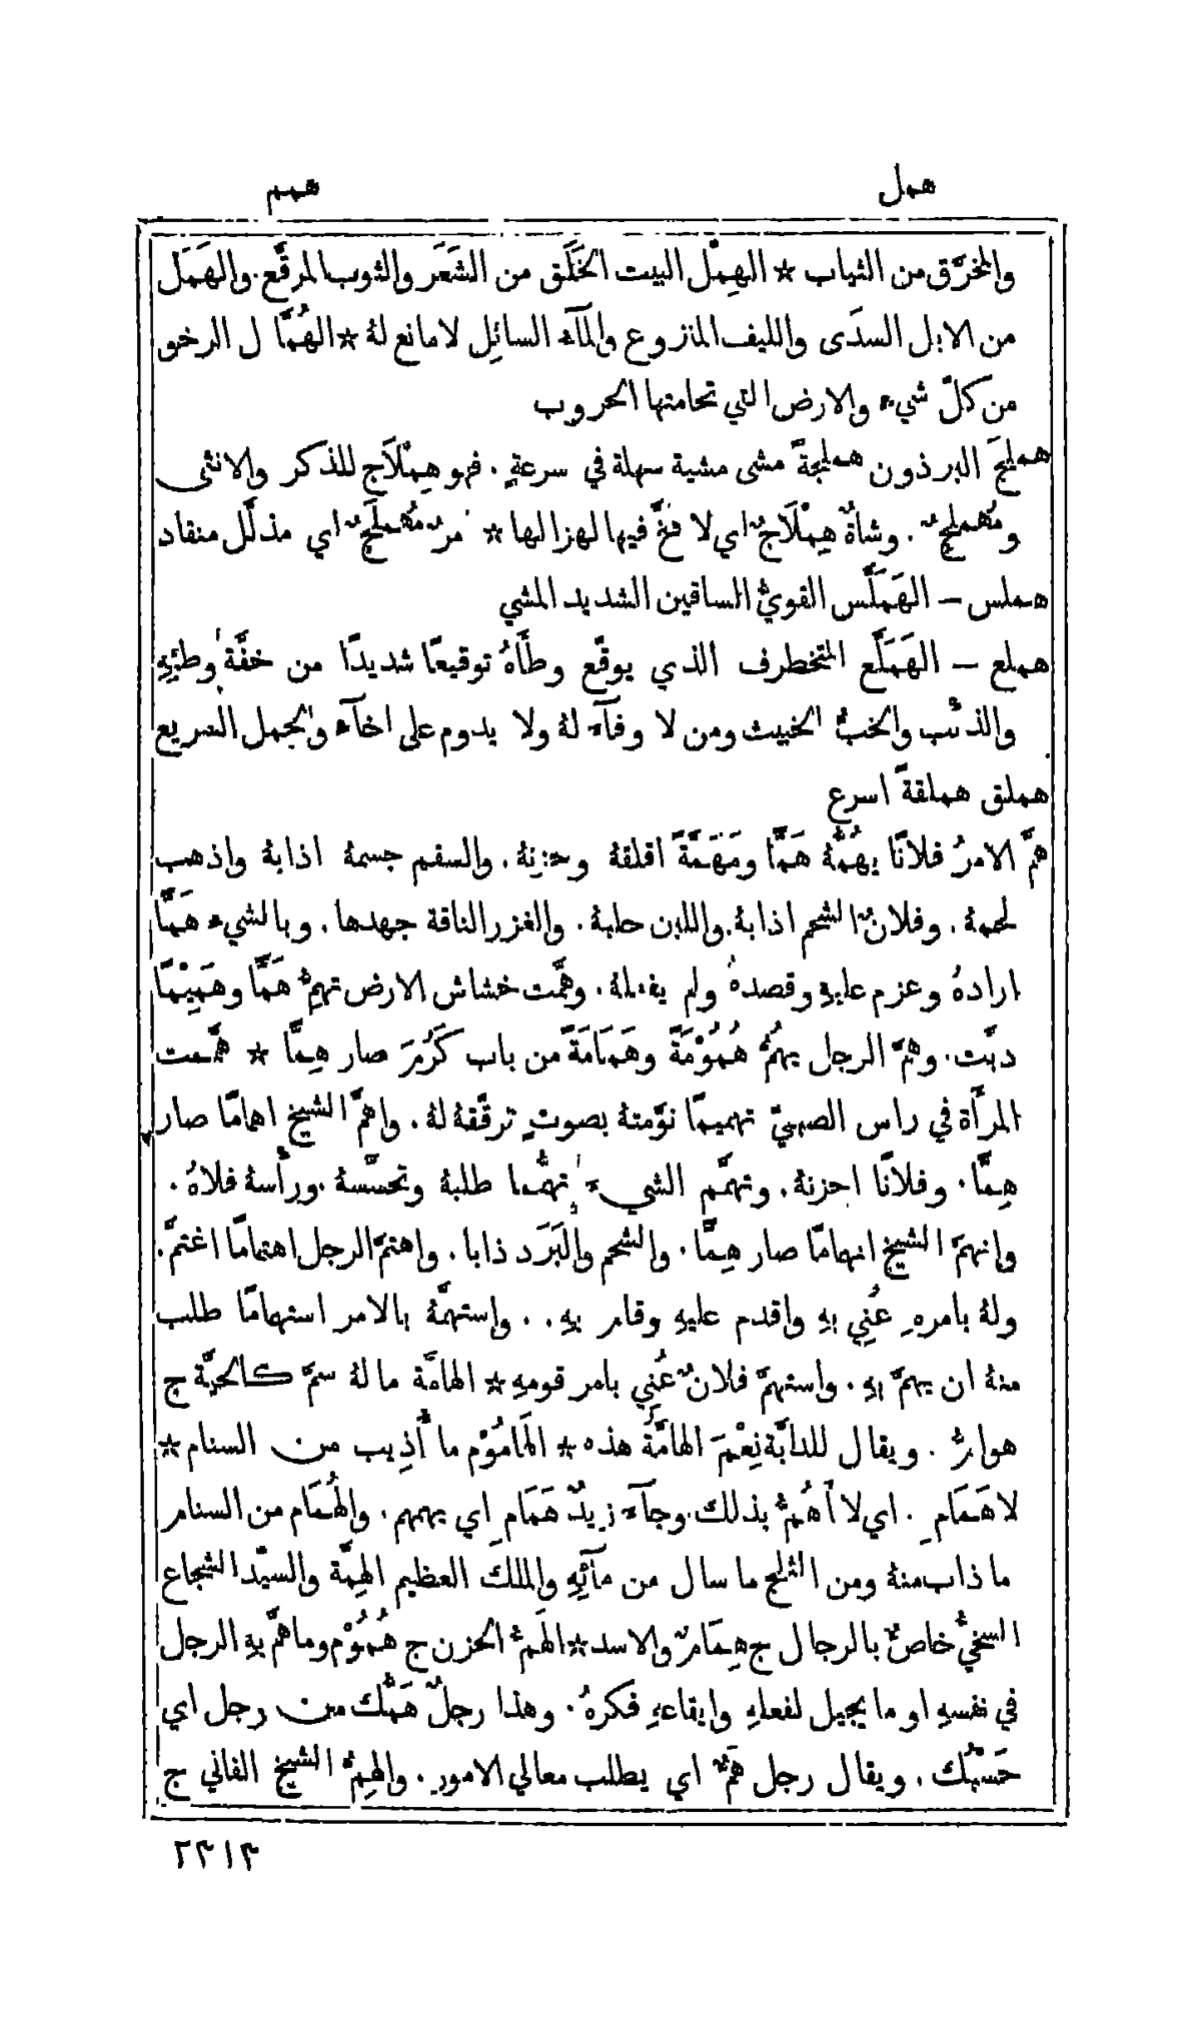 همل
همم
والمخرَّق من الثياب * الهِمْل البيت الخَلَق من الشَعَر والثوب المرقَّع. والهَمَل
من الابل السدَى والليف المنزوع والمآء السائِل لا مانع لهُ * الهُمَّال الرخو
من كلّ شيء والارض التي تحامتها الحروب
هملجَ البرذون هملجةً مشى مشية سهلة في سرعةٍ. فهو هِمْلَاج للذكر والانثى
ومُهملِجٌ. وشاةٌ هِمْلَاجٌ اي لا مخَّ فيها لهزالها * امرٌ مُهملَجٌ اي مذلَّل منقاد
هملس — الهَمَلَّس القويُّ الساقين الشديد المشي
هملع — الهَمَلَّع المتخطرف الذي يوقّع وطأَهُ توقيعًا شديدًا من خفَّة وطئِهِ
والذئب والخبُّ الخبيث ومن لا وفآء لهُ ولا يدوم على اخآء والجمل السريع
هملق هملقةً اسرع
همَّ الامرُ فلانًا يهُمُّهُ هَمًّا ومَهَمَّةً اقلقهُ وحزنهُ. والسقم جسمهُ اذابهُ واذهب
لحمهُ. وفلانٌ الشحم اذابهُ. واللبن حلبهُ. والغزر الناقة جهدها. وبالشيء هَمًّا
ارادهُ وعزم عليهِ وقصدهُ ولم يفعلهُ. وهمَّت خشاش الارض تهِمُّ هَمًّا وهَمِيْمًا
دبَّت. وهمَّ الرجل يهُمُّ هُمُوْمَةً وهَمَامَةً من باب كَرُمَ صار هِمًّا * همَّمت
المرأَة في راس الصبيّ تهميمًا نوَّمتهُ بصوتٍ ترقّقهُ لهُ. واهمَّ الشيخ اهمامًا صار
هِمًّا. وفلانًا احزنهُ. وتهمَّم الشيءَ تهمُّما طلبهُ وتحسَّسهُ. ورأْسهُ فلاهُ.
وانهمَّ الشيخ انهمامًا صار هِمًّا. والشحم والبَرَد ذابا. واهتمَّ الرجل اهتمامًا اغتمَّ.
ولهُ بامرهِ عُنِي بهِ واقدم عليهِ وقام بهِ. . واستهمَّهُ بالامر استهمامًا طلب
منهُ ان يهمَّ بهِ. واستهمَّ فلانٌ عُنِي بامر قومهِ * الهامَّة ما لهُ سمّ كالحيَّة ج
هوامُّ. ويقال للدابَّة نِعْمَ الهامَّةُ هذه * المَامُوْم ما أُذِيب من السنام *
لا هَمَامِ. اي لا أَهُمُّ بذلك. وجآء زيدٌ هَمَامِ اي يهمهم. والهُمَام من السنام
ما ذاب منهُ ومن الثلج ما سال من مآئِهِ والملك العظيم الهِمَّة والسيّد الشجاع
السخيُّ خاصٌّ بالرجال ج هِمَامٌ والاسد * الهَمُّ الحزن ج هُمُوْم وما همَّ بهِ الرجل
في نفسهِ او ما يجيل لفعلهِ وايقاعهِ فكرهُ. وهذا رجلٌ هَمُّك من رجل اي
حَسْبُك. ويقال رجل هَمٌّ اي يطلب معالي الامور. والهِمُّ الشيخ الفاني ج
٢٢١٣